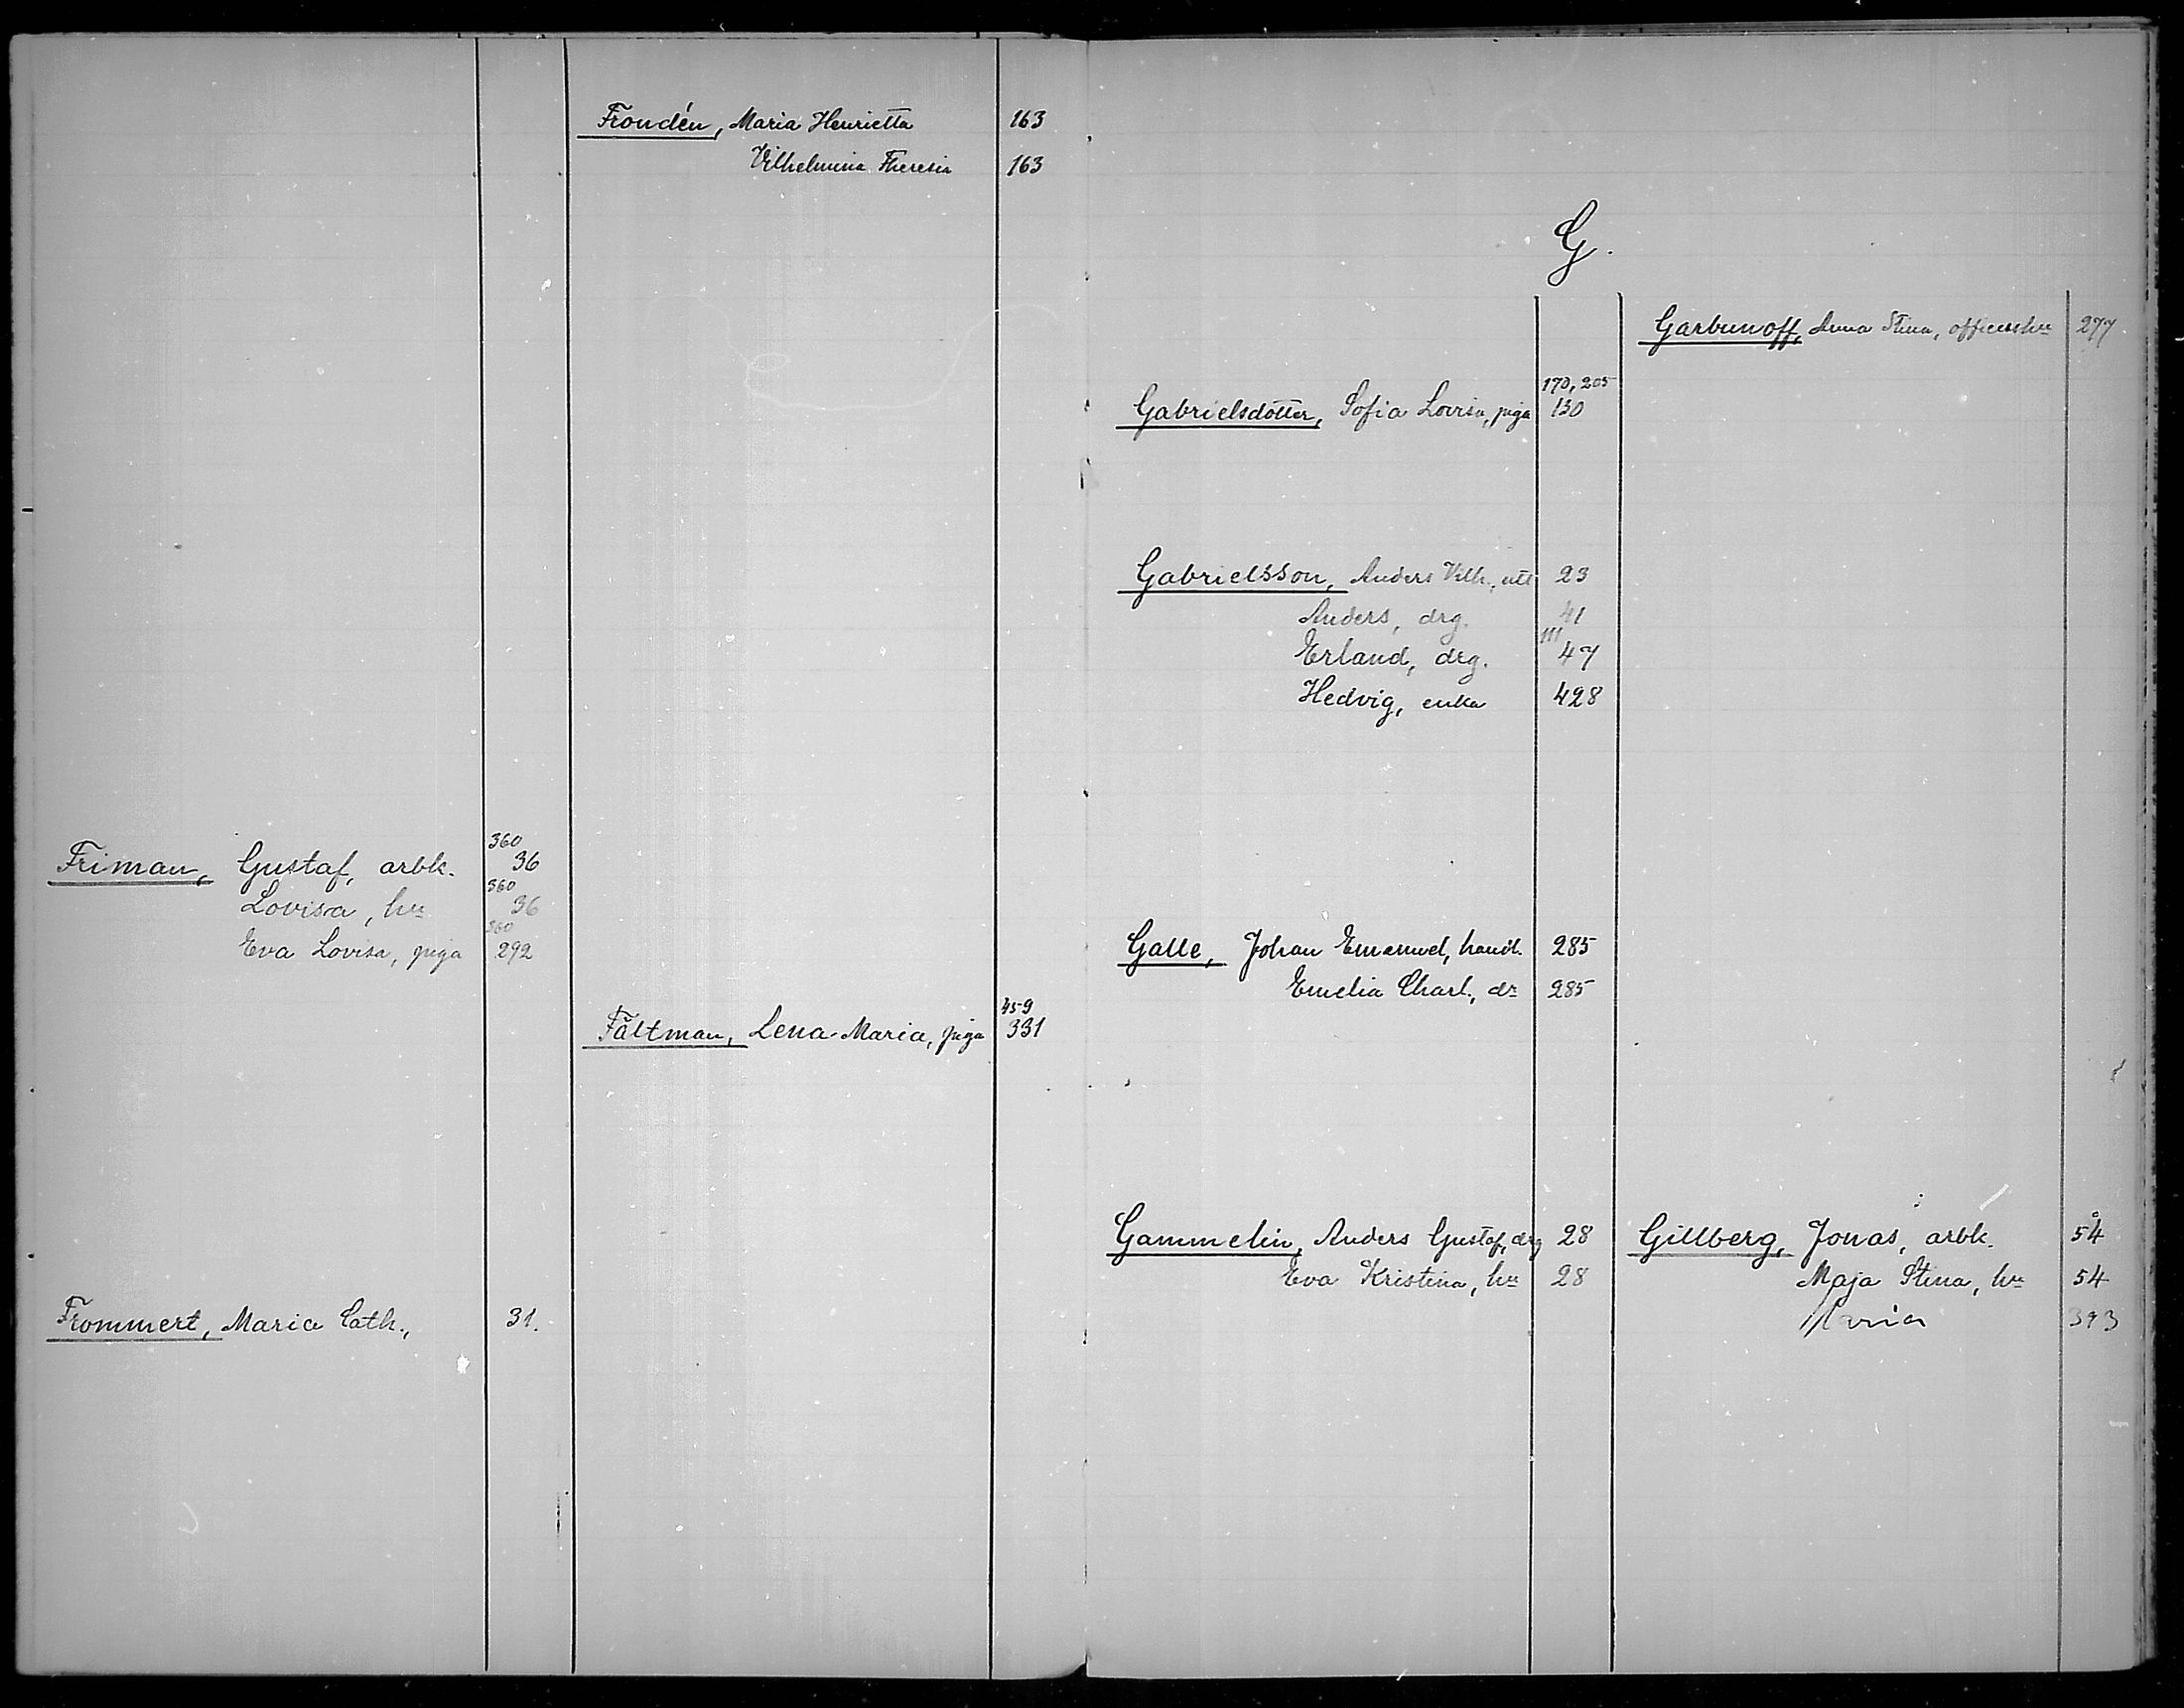 Friman, Gustaf, arbk. 360 36
Lovisa, hu 360 36
Eva Lovisa, piga 360 292
Frommert, Maria Cath., 31.
Froudén, Maria Henrietta 163
Vilhelmina Theresia 163
Fältman, Lena Maria, piga 459 331
G.
Gabrielsdotter, Sofia Lovisa, piga 170, 205 130
Gabrielsson, Anders Vilh., 23
Anders, drg. 41
Erland, drg. 111 47
Hedvig, enka 428
Galle, Johan Emanuel, handl. 285
Emelia Charl., dr 285
Gammelin, Anders Gustaf, drg 28
Eva Kristina, hu 28
Garbunoff, Anna Stina, officershu 277
Gillberg, Jonas, arbk. 54
Maja Stina, hu 54
Maria 393